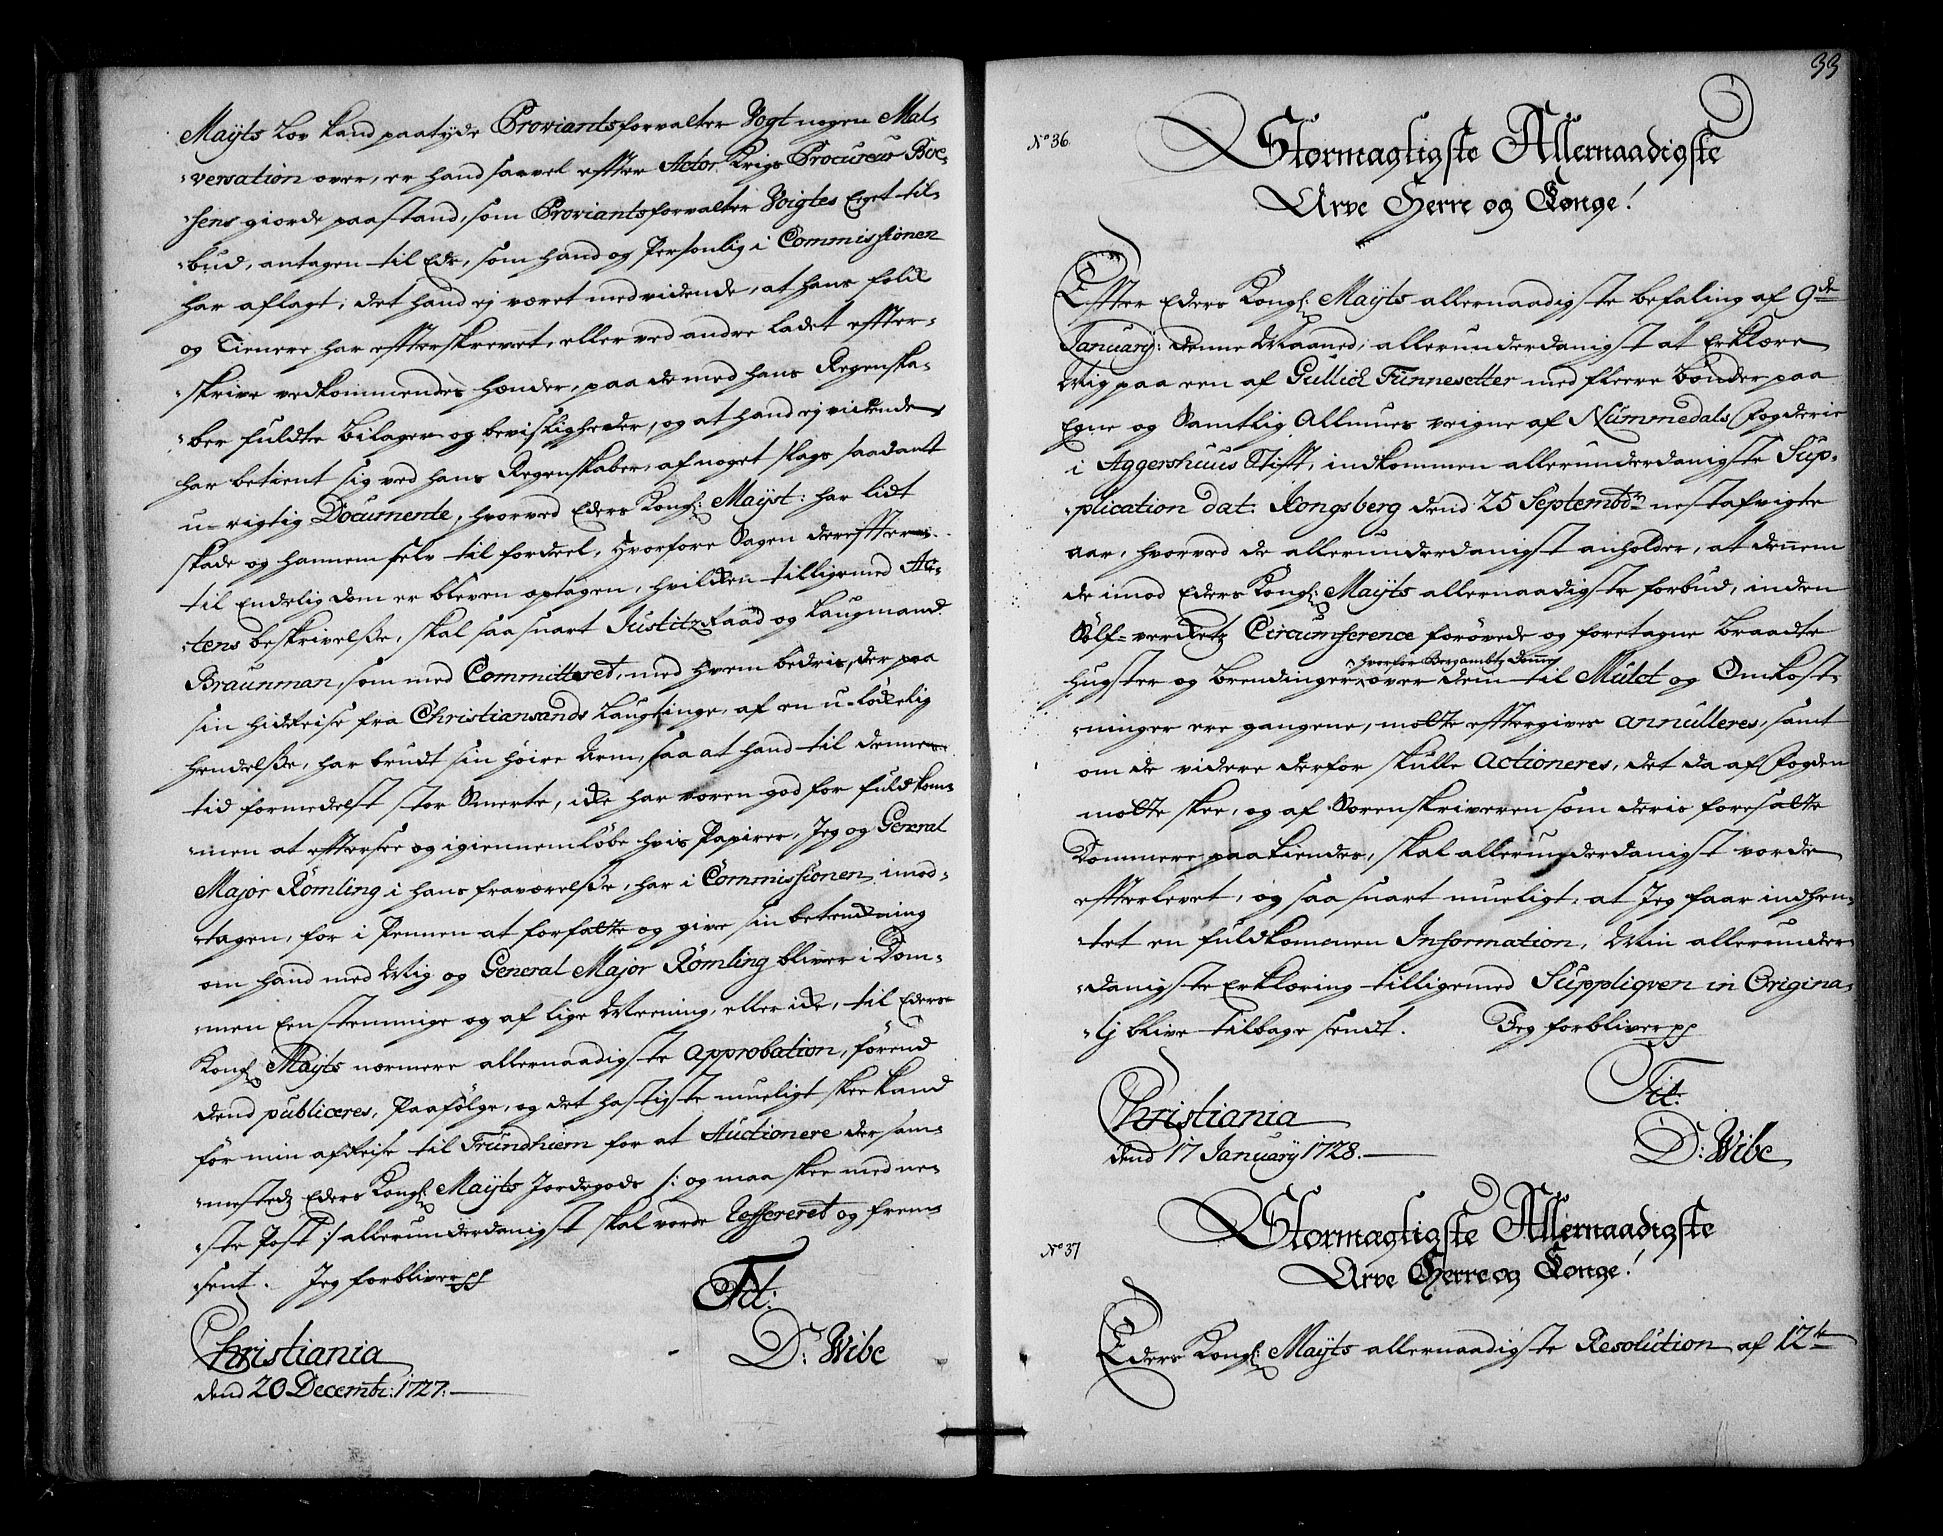 Maÿts Lov kand paatyde Proviantsforvalter Vogt nogen Mal-
-versation over, er hand saavel effter Actor Krigs Procureur Boe-
-sens giorde paastand, som Proviantsforvalter Voigtes Eget til-
-bud, antagen til Ede, som hand og Personlig i Commissionen
har aflagt; det hand ej været medvidende, at hans folk
og Tienere har effterskrevet, eller ved andre ladet effter-
-skrive vedkommendes hænder, paa de med hans Regenska-
-ber fuldte bilager og bevisligheder, og at hand ej vidende
har betient sig ved hans Regenskaber, af noget slags saadant
u-rigtig Documente, hvorved Eders Kongl: Mayst: har lidt
skade og hannem selv til fordeel, hvorfore Sagen dereffter
til Endelig dom er bleven optagen, hvilken tilligemed Ac-
-tens beskrivelße, skal saa snart JustitzRaad og Laugmand
Braunman, som med Committeret, med hvem bedris, der paa
sin hidReise fra Christiansands Laugtinge, af en u-løkkelig
hendelße, har brudt sin høire Arm, saa at hand til denne
tid formedelst stor Smerte, ikke har voren god for fuldkom-
-men at efftersee og igiennemløbe hvis Papirer, Jeg og General
Major Rømling i hans fraværelße, har i Commissionen imod-
-tagen, for i Pennen at forfatte og give sin betenkning
om hand med Mig og General Major Rømling bliver i Dom-
-men Eenstemmige og af lige Meening, eller ikke, til Eders
Kongl Mayts nærmere allernaadigste approbation, førend
dend publiceres, Paafølge, og det hastigste mueligt skee kand
før min afReise til Trundhiem for at Auctionere der sam-
-mestedz Eders Kongl: Mayts Jordegods /: og maa skee med ne-
-ste Post :/ allerunderdanigst skal vorde Reffereret og frem-
sent. Jeg forbliver pp
Tit:
D: Wibe
Christiania
dend 20 Decembr: 1727.
33
No 36
Stormagtigste Allernaadigste
Arve Herre og Konge!
Effter Eders Kongl: Mayts allernaadigste befaling af 9de
January: denne Maaned, allerunderdanigst at Erklære
Mig paa een af Gullich Funnesetter med fleere bønder paa
Egne og Samtlig Allmues veigne af Nummedals Fogderie
i Aggershuus Stift, indkommen allerunderdanigste Sup-
-plication dat. Kongsberg dend 25 Septembr nestafvigte
aar, hvorved de allerunderdanigst anholder, at dennem
de imod Eders Kongl: Mayts allernaadigste forbud, inden
Sølf-verketz Circumference forøvede og foretagne Braadte
hugster og brendinger, hvorfor Bergambtz Domme over dem til Mulct og Omkost-
-ninger ere gangene, maatte efftergives annulleres, samt
om de videre derfor skulle actioneres, det da af Fogden
maatte skee, og af Sorenskriveren som deris foresatte
Dommere paakiendes, skal allerunderdanigst vorde
effterlevet, og saa snart mueligt, at Jeg faar indhen-
-tet en fuldkomenen Information, Min allerunder-
danigste Erklæring tilligemed Suppliqven in Origina-
-lj blive tilbage sendt. Jeg forbliver pp
Tit:
Christiania
dend 17 January 1728.
D: Wibe
No 37
Stormægtigste Allernaadigste
Arve Herre og Konge!
Eders Kongl: Mayts allernaadigste Resolution af 12te